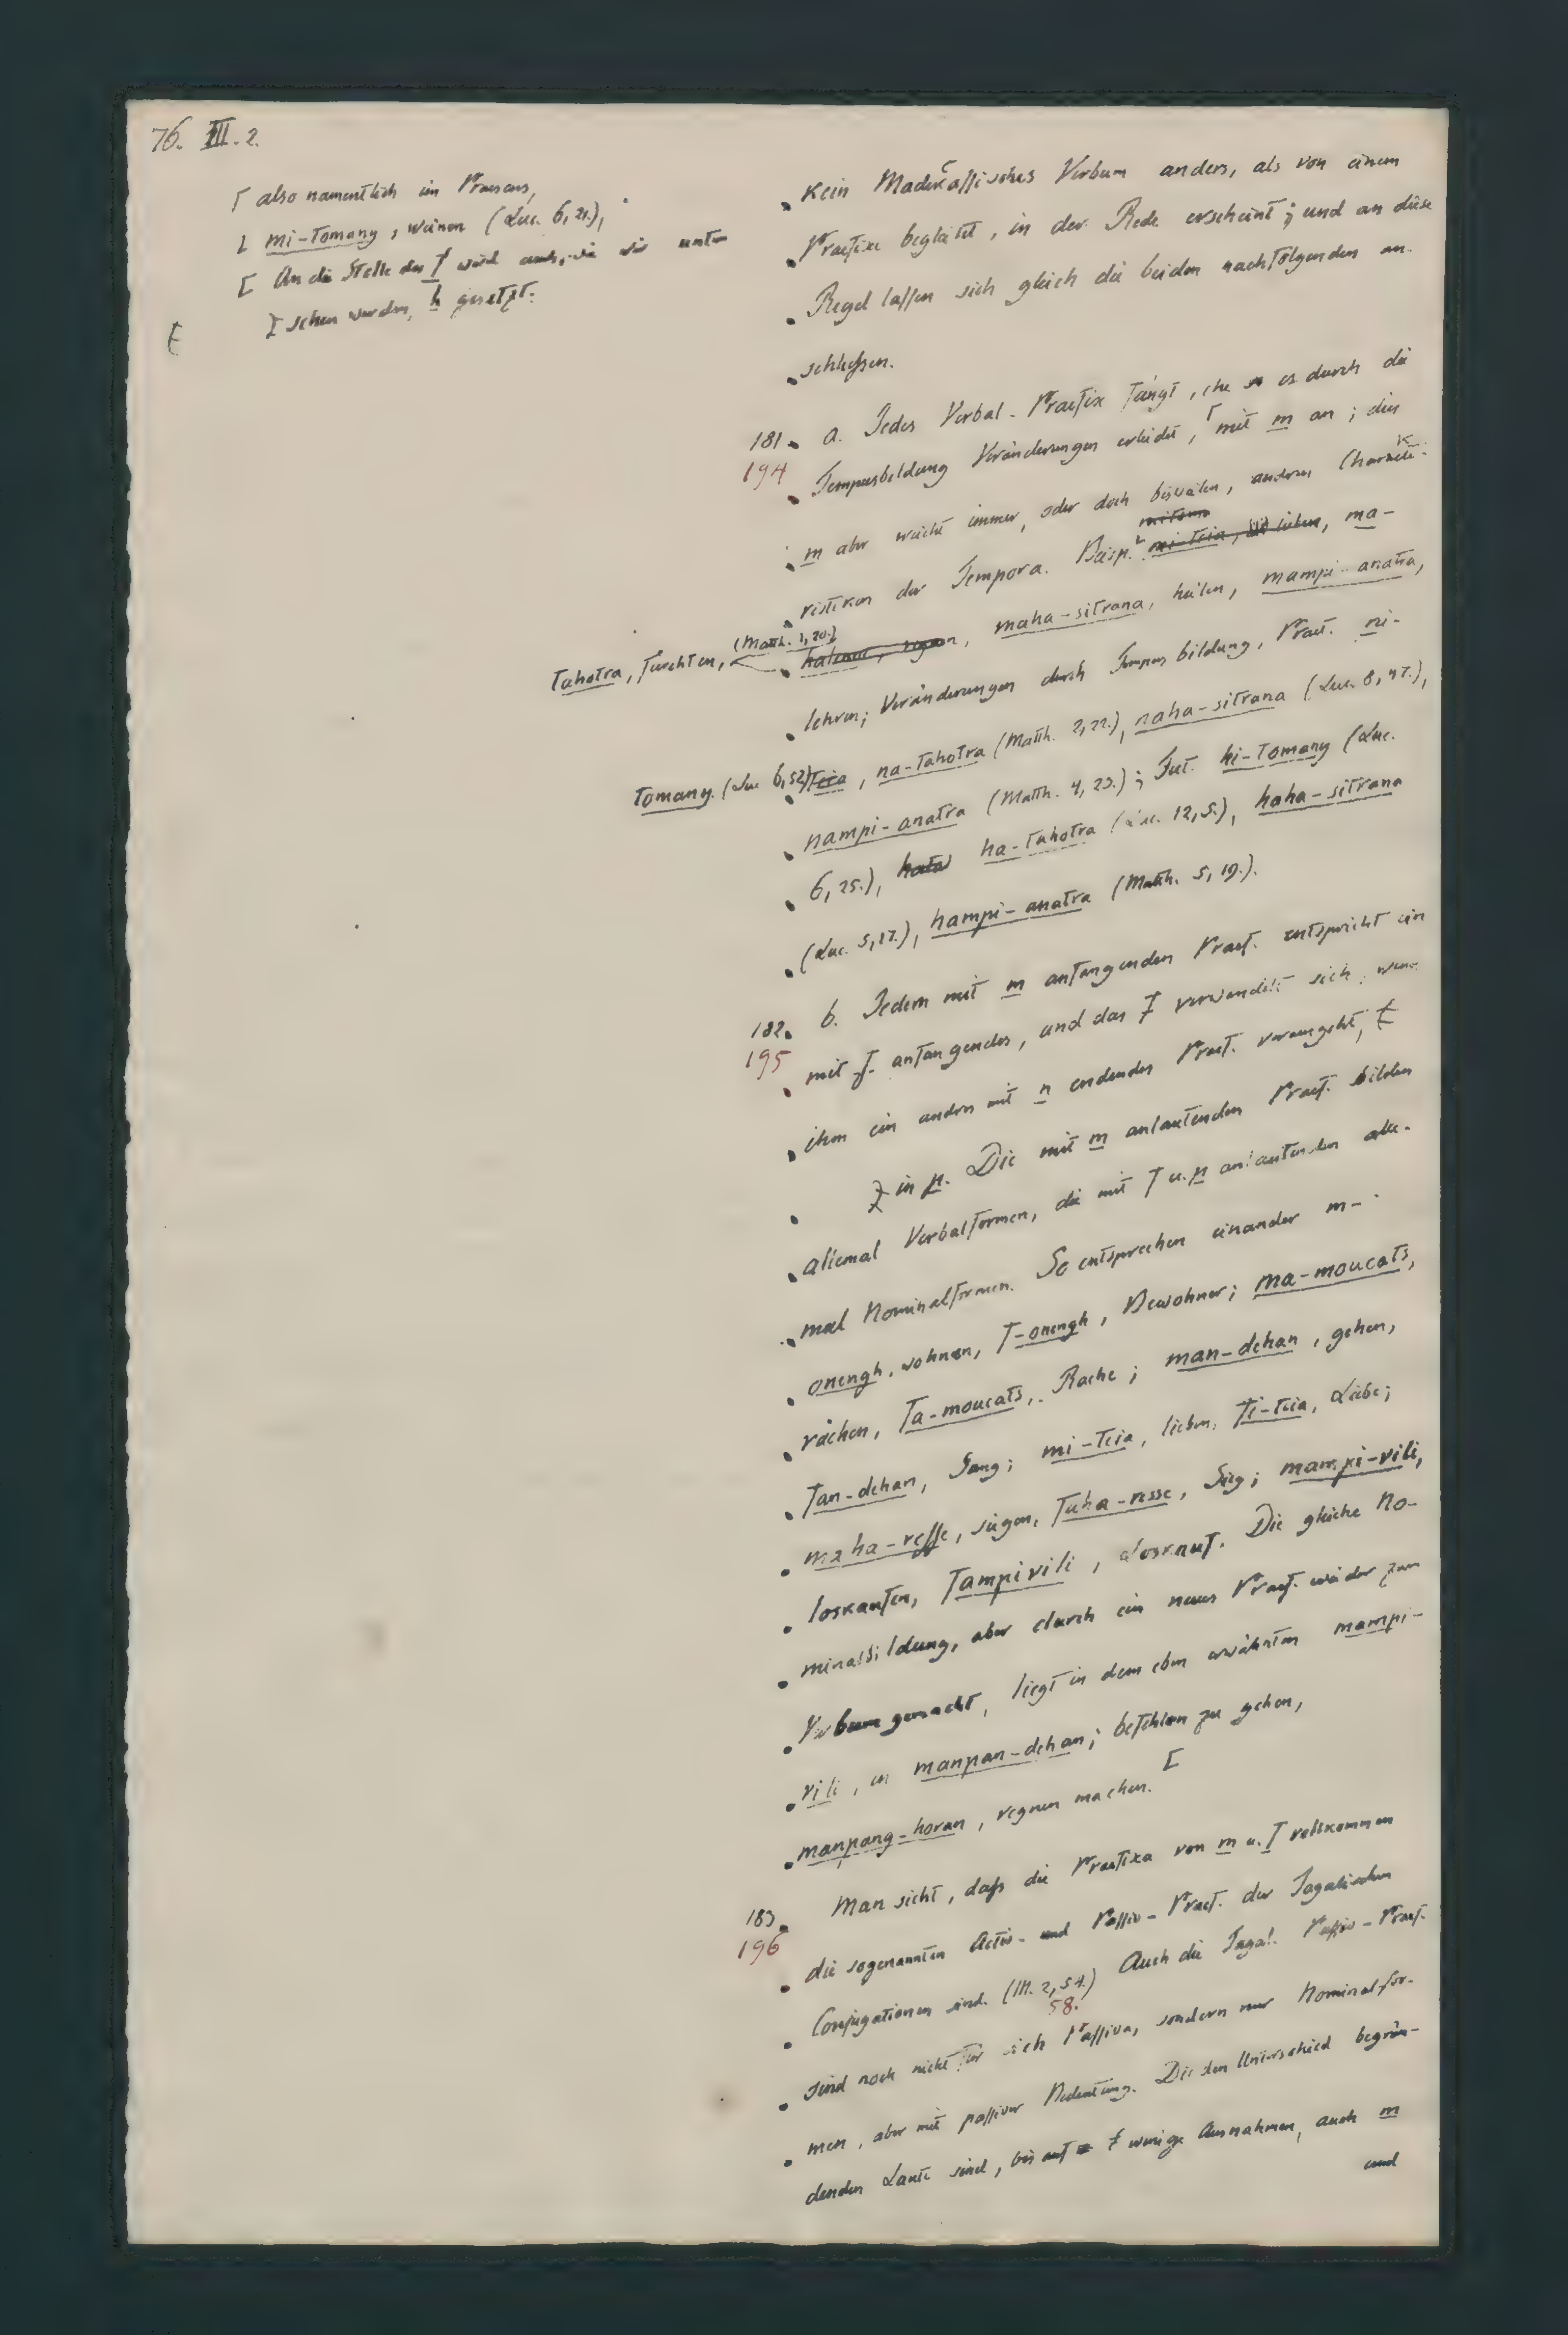 76. III. 2.
⌈ also namentlich im Praesens,
⌊ mi-tomany, weinen (Luc. 6, 21.),
[ An die Stelle des f wird auch, wie wir unten
sehen werden, h gesetzt.
kein Madecassisches Verbum anders, als von einem
Praefixe begleitet, in der Rede erscheint; und an diese
Regel lassen sich gleich die beiden nachfolgenden an-
schliessen.
181. a. Jedes Verbal-Praefix fängt, ehe es durch die
194
Tempusbildung Veränderungen erleidet, ⌈ mit m an; dies
m aber weicht immer, oder doch bisweilen, andren Charakte-
ristiken der Tempora. Beisp. ⌊ mi-teia, lieben, ma-
tahotra, fürchten, (Matth. 1, 20.) maha-sitrana, heilen, mampi-anatra,
lehren; Veränderungen durch Tempusbildung, Praet. ni-
tomany. (Luc. 6,52) teia, na-tahotra (Matth. 2, 22.), naha-sitrana (Luc. 8, 47.),
nampi-anatra (Matth. 4, 23.); Fut. hi-tomany (Luc.
6, 25.), ha-tahotra (Luc. 12, 5.), haha-sitrana
(Luc. 5, 17.), hampi-anatra (Matth. 5, 19.).
182. b. Jedem mit m anfangenden Praef. entspricht ein
195
mit f anfangendes, und das f verwandelt sich, wenn
ihm ein andres mit n endendes Praef. vorausgeht,
in p. Die mit m anlautenden Praef. bilden
allemal Verbalformen, die mit f u. p anlautenden alle-
mal Nominalformen. So entsprechen einander m-
onengh, wohnen, f-onengh, Bewohner; ma-moucats,
rächen, fa-moucats, Rache; man-dehan, gehen,
fan-dehan, Gang; mi-teia, lieben, fi-teia, Liebe;
maha-resse, siegen, faha-resse, Sieg; mampi-vili,
loskaufen, fampivili, Loskauf. Die gleiche No-
minalbildung, aber durch ein neues Praef. wieder zum
Verbum gemacht, liegt in dem eben erwähnten mampi-
vili, in manpan-dehan; befehlen zu gehen,
manpang-horan, regnen machen. [
183. Man sieht, dass die Praefixa von m u. f vollkommen
196
die sogenannten Activ- und Passiv-Praef. der Tagalischen
Conjugationen sind. (III. 2, 54.) Auch die Tagal. Passiv-Praef.
58.
sind noch nicht für sich Passiva, sondern nur Nominalfor-
men, aber mit passiver Bedeutung. Die den Unterschied begrün-
denden Laute sind, bis auf wenige Ausnahmen, auch m
und